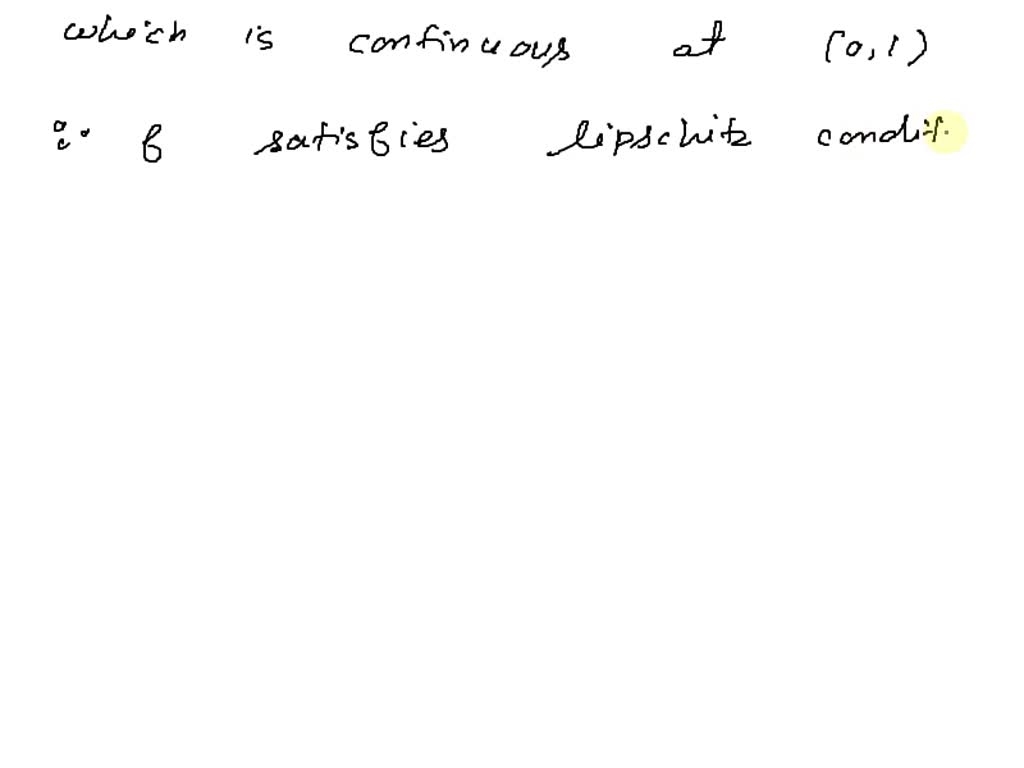 which is continuous at (0,1)
∵ f satisfies lipschitz condit